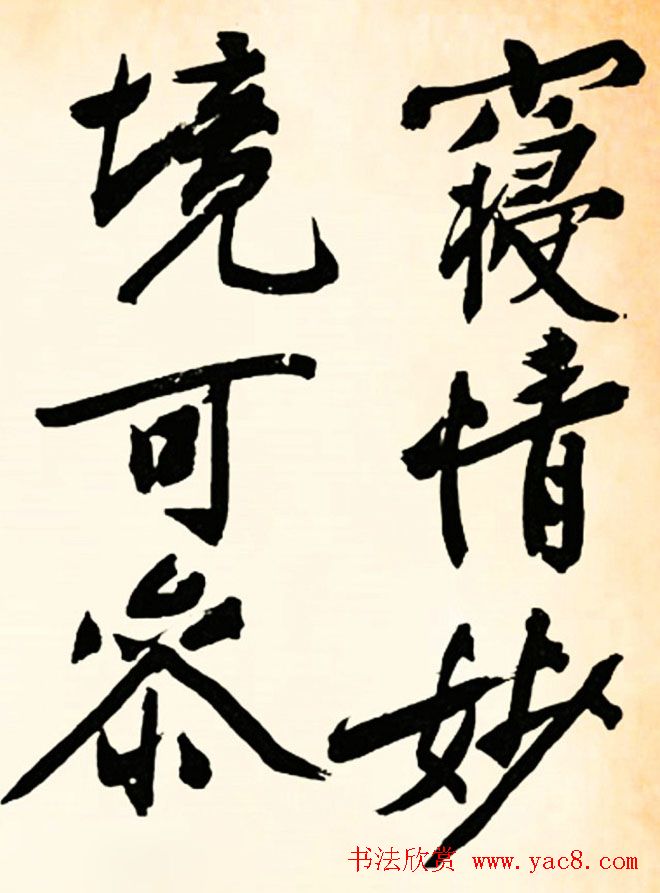 寝情妙
境可参
书法欣赏 www.yac8.com